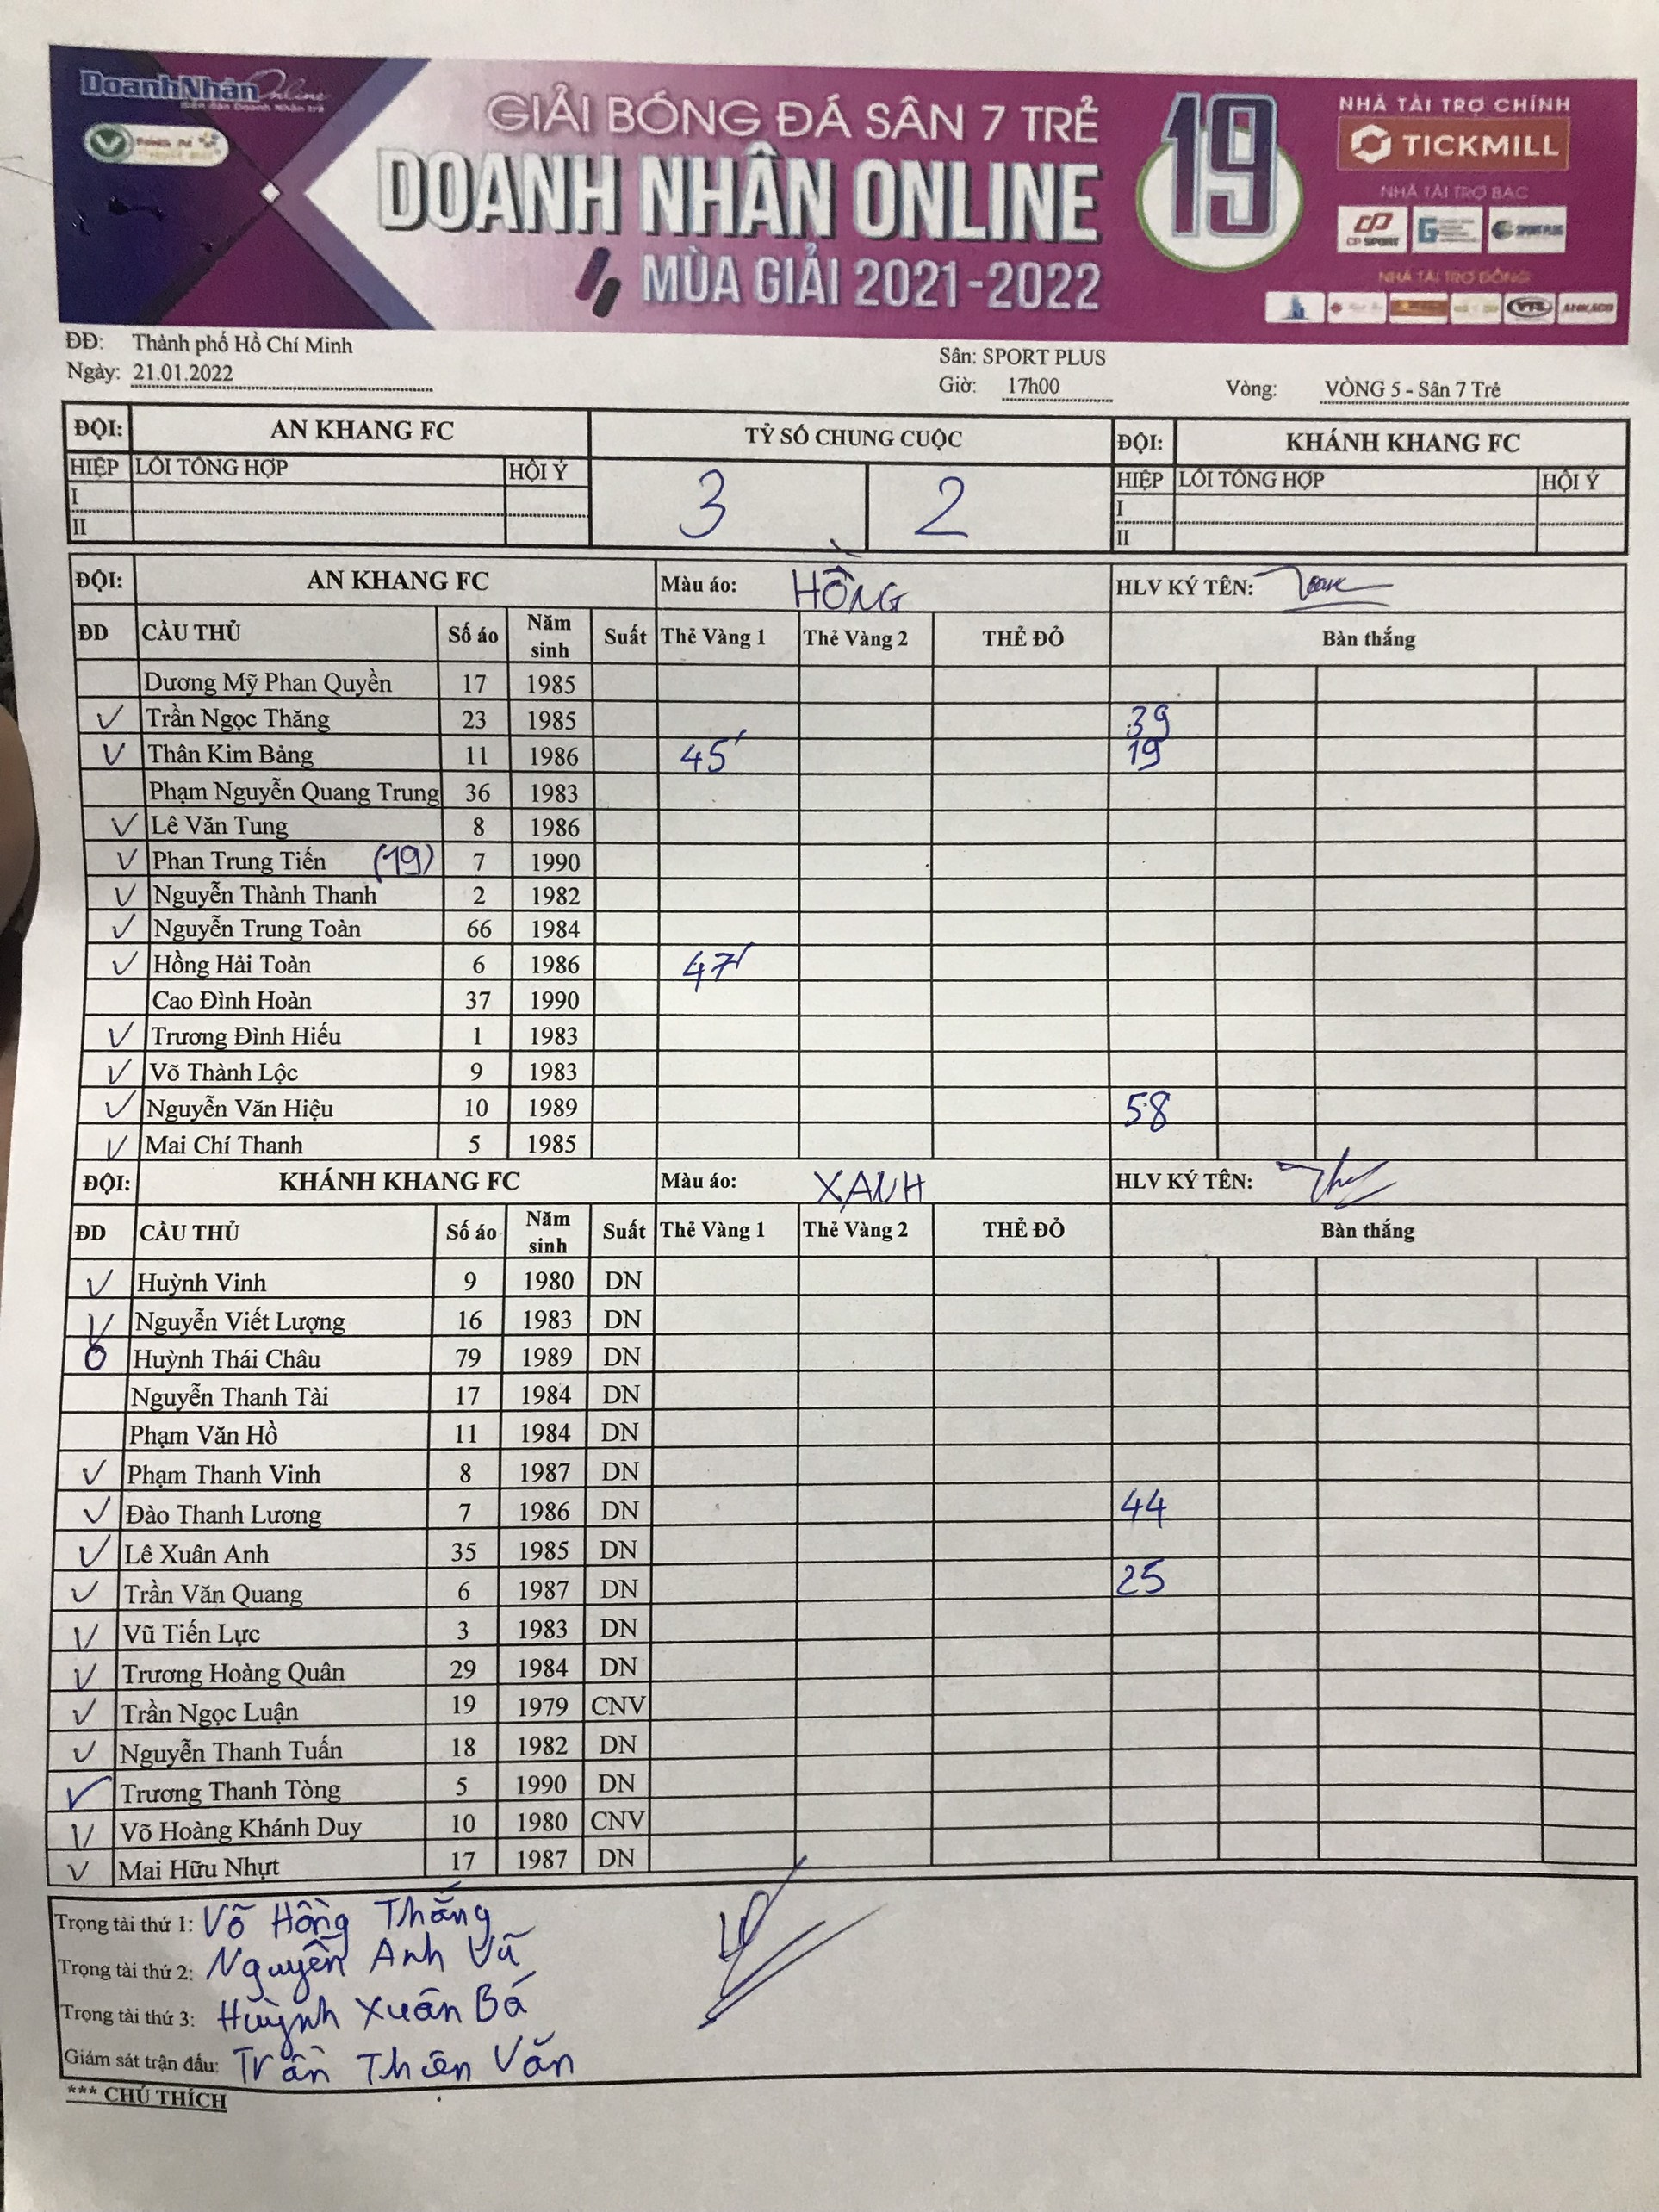 DoanhNhân Online
Diễn đàn Doanh Nhân trẻ
GIẢI BÓNG ĐÁ SÂN 7 TRẺ
DOANH NHÂN ONLINE
MÙA GIẢI 2021-2022
19
NHÀ TÀI TRỢ CHÍNH
TICKMILL
NHÀ TÀI TRỢ BẠC
CP SPORT SPORT PLUS
NHÀ TÀI TRỢ ĐỒNG
VTS ANKACO
ĐĐ: Thành phố Hồ Chí Minh Sân: SPORT PLUS
Ngày: 21.01.2022 Giờ: 17h00 Vòng: VÒNG 5 - Sân 7 Trẻ
ĐỘI: AN KHANG FC TỶ SỐ CHUNG CUỘC ĐỘI: KHÁNH KHANG FC
HIỆP LỖI TỔNG HỢP HỘI Ý 3 2 HIỆP LỖI TỔNG HỢP HỘI Ý
I I
II II
ĐỘI: AN KHANG FC Màu áo: HỒNG HLV KÝ TÊN:
ĐD CẦU THỦ Số áo Năm sinh Suất Thẻ Vàng 1 Thẻ Vàng 2 THẺ ĐỎ Bàn thắng
Dương Mỹ Phan Quyền 17 1985
✓ Trần Ngọc Thăng 23 1985 39
✓ Thân Kim Bảng 11 1986 45' 19
Phạm Nguyễn Quang Trung 36 1983
✓ Lê Văn Tung 8 1986
✓ Phan Trung Tiến (19) 7 1990
✓ Nguyễn Thành Thanh 2 1982
✓ Nguyễn Trung Toàn 66 1984
✓ Hồng Hải Toàn 6 1986 47'
Cao Đình Hoàn 37 1990
✓ Trương Đình Hiếu 1 1983
✓ Võ Thành Lộc 9 1983
✓ Nguyễn Văn Hiệu 10 1989 58
✓ Mai Chí Thanh 5 1985
ĐỘI: KHÁNH KHANG FC Màu áo: XANH HLV KÝ TÊN:
ĐD CẦU THỦ Số áo Năm sinh Suất Thẻ Vàng 1 Thẻ Vàng 2 THẺ ĐỎ Bàn thắng
✓ Huỳnh Vinh 9 1980 DN
✓ Nguyễn Viết Lượng 16 1983 DN
O Huỳnh Thái Châu 79 1989 DN
Nguyễn Thanh Tài 17 1984 DN
Phạm Văn Hồ 11 1984 DN
✓ Phạm Thanh Vinh 8 1987 DN
✓ Đào Thanh Lương 7 1986 DN 44
✓ Lê Xuân Anh 35 1985 DN
✓ Trần Văn Quang 6 1987 DN 25
✓ Vũ Tiến Lực 3 1983 DN
✓ Trương Hoàng Quân 29 1984 DN
✓ Trần Ngọc Luận 19 1979 CNV
✓ Nguyễn Thanh Tuấn 18 1982 DN
✓ Trương Thanh Tòng 5 1990 DN
✓ Võ Hoàng Khánh Duy 10 1980 CNV
✓ Mai Hữu Nhựt 17 1987 DN
Trọng tài thứ 1: Võ Hồng Thắng
Trọng tài thứ 2: Nguyễn Anh Vũ
Trọng tài thứ 3: Huỳnh Xuân Bá
Giám sát trận đấu: Trần Thiên Văn
*** CHÚ THÍCH